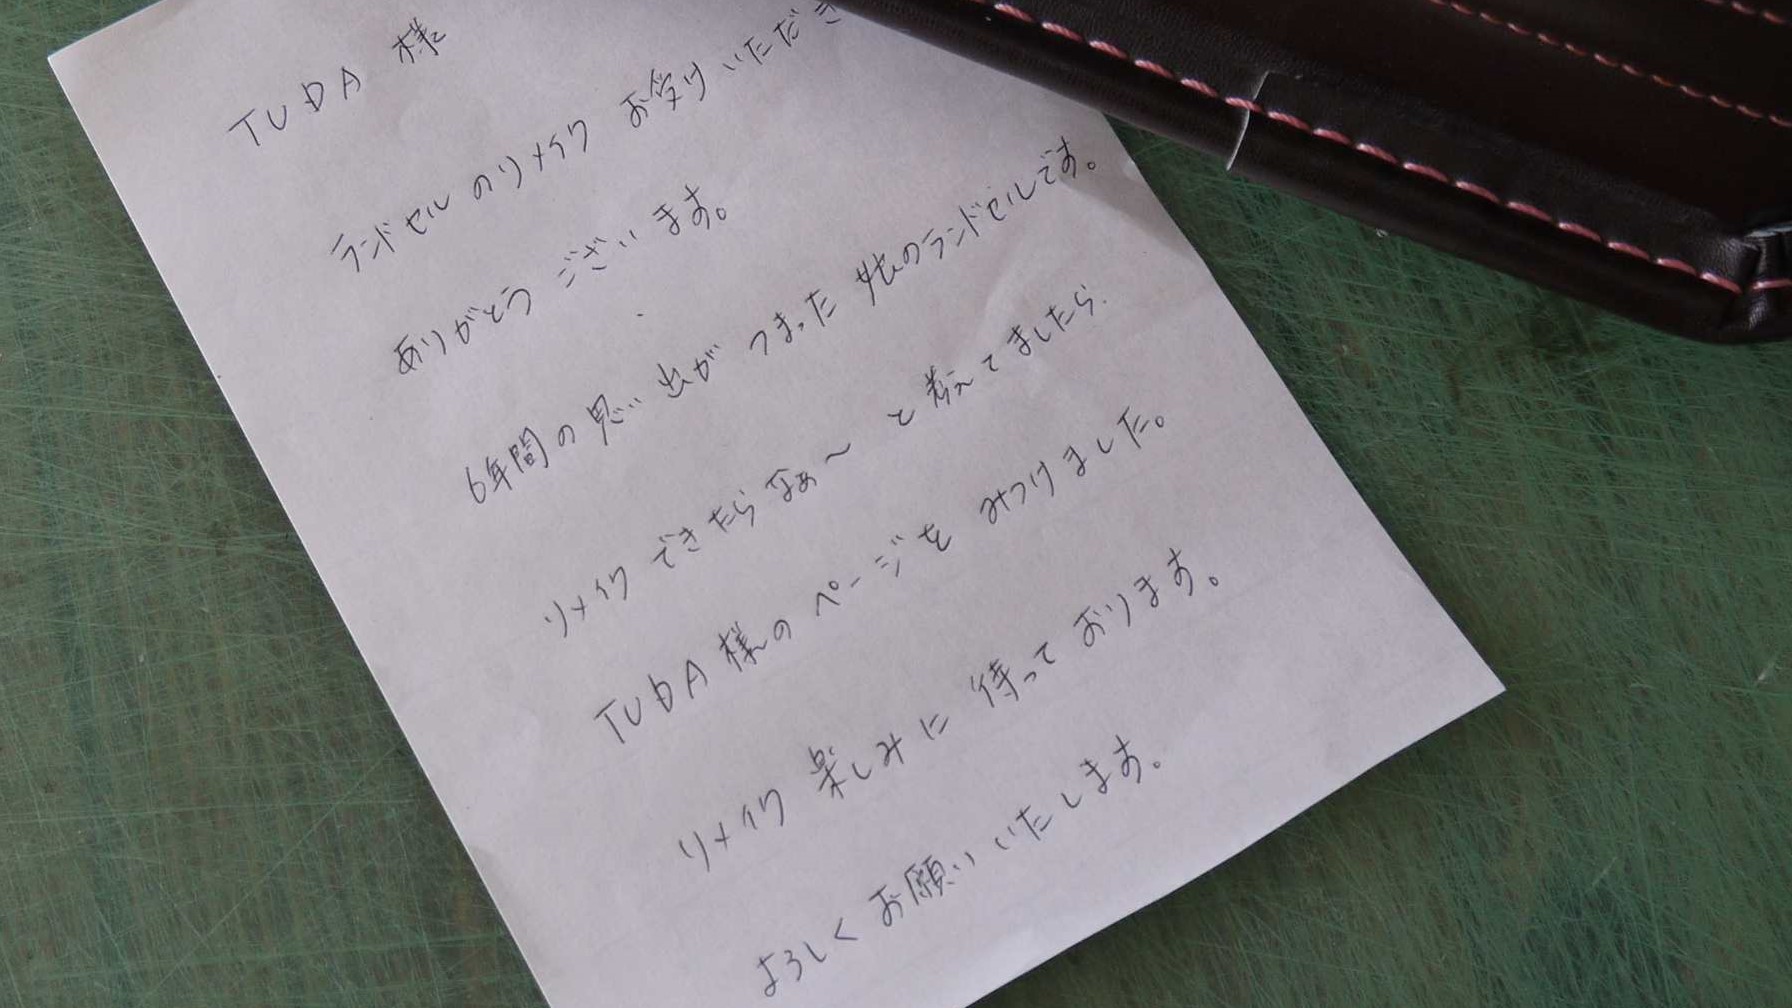 TUDA 様
ランドセルのリメイク お受けいただき
ありがとう ございます。
6年間の思い出が つまった 私のランドセルです。
リメイクできたらなぁ～ と考えてましたら
TUDA 様の ページを みつけました。
リメイク 楽しみに 待って おります。
よろしく お願い いたします。